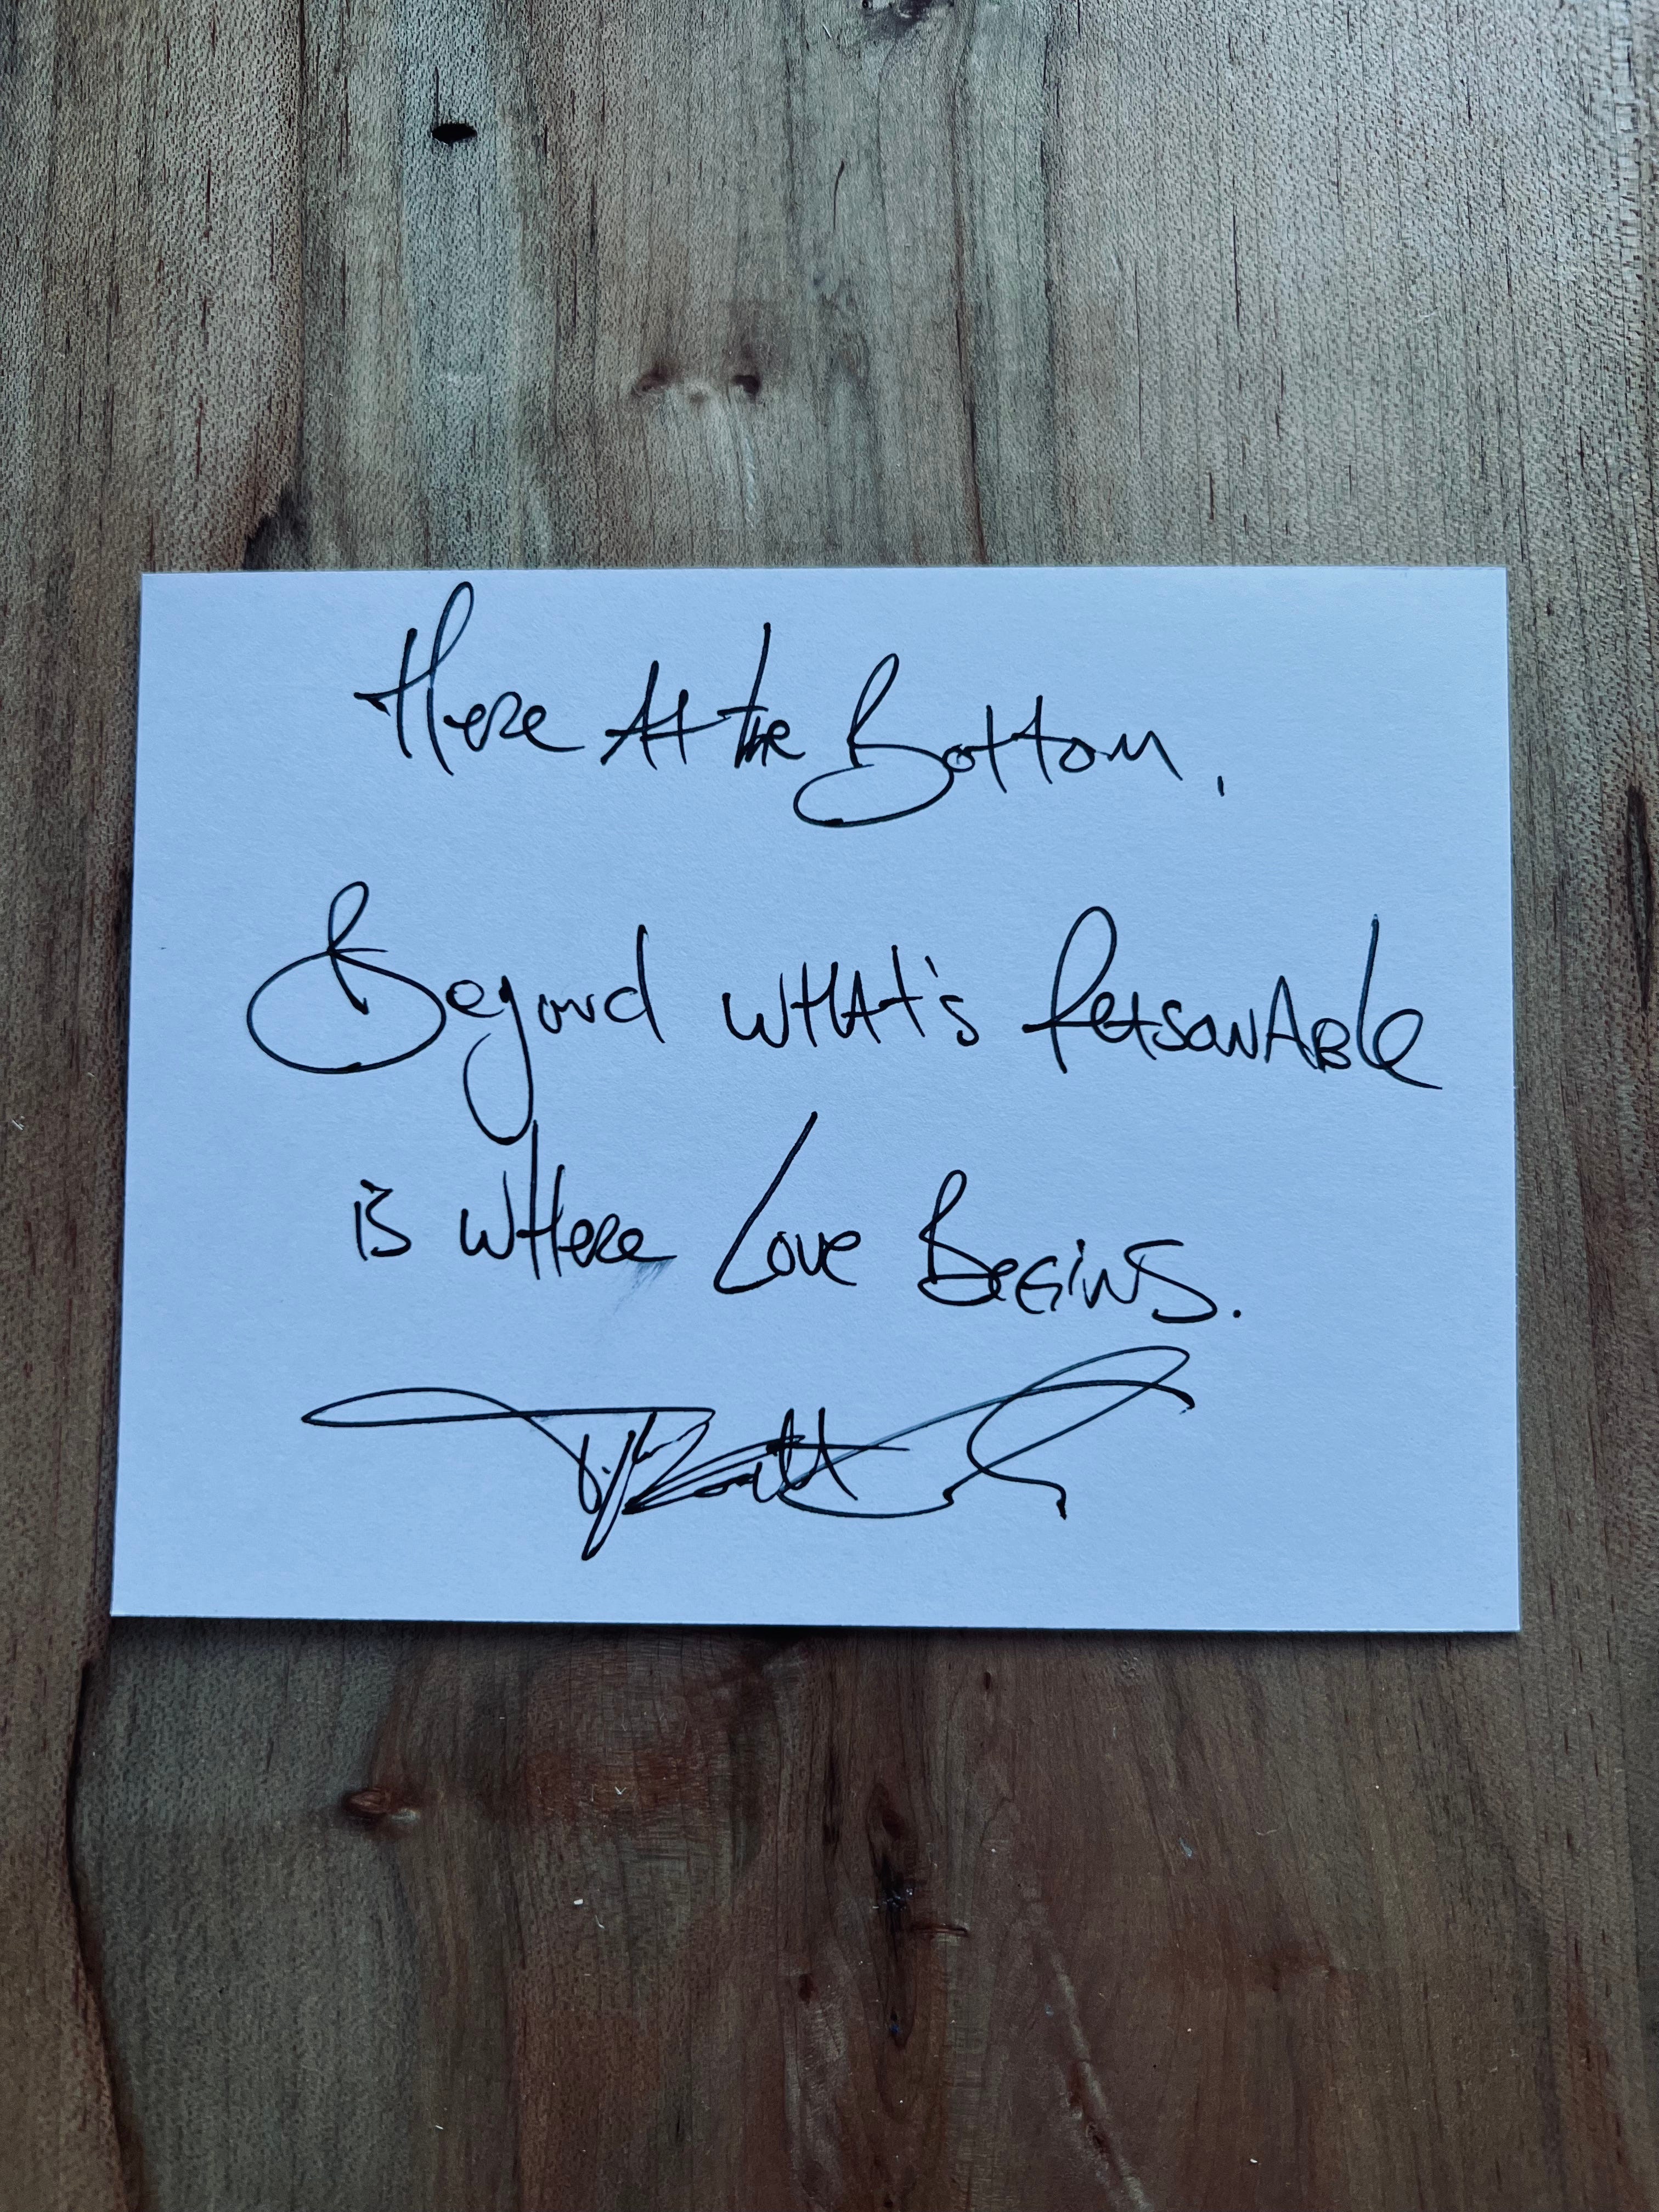 Here At the Bottom,
Beyond wHAt's ReasonABle
is wHere Love BeGiNS.